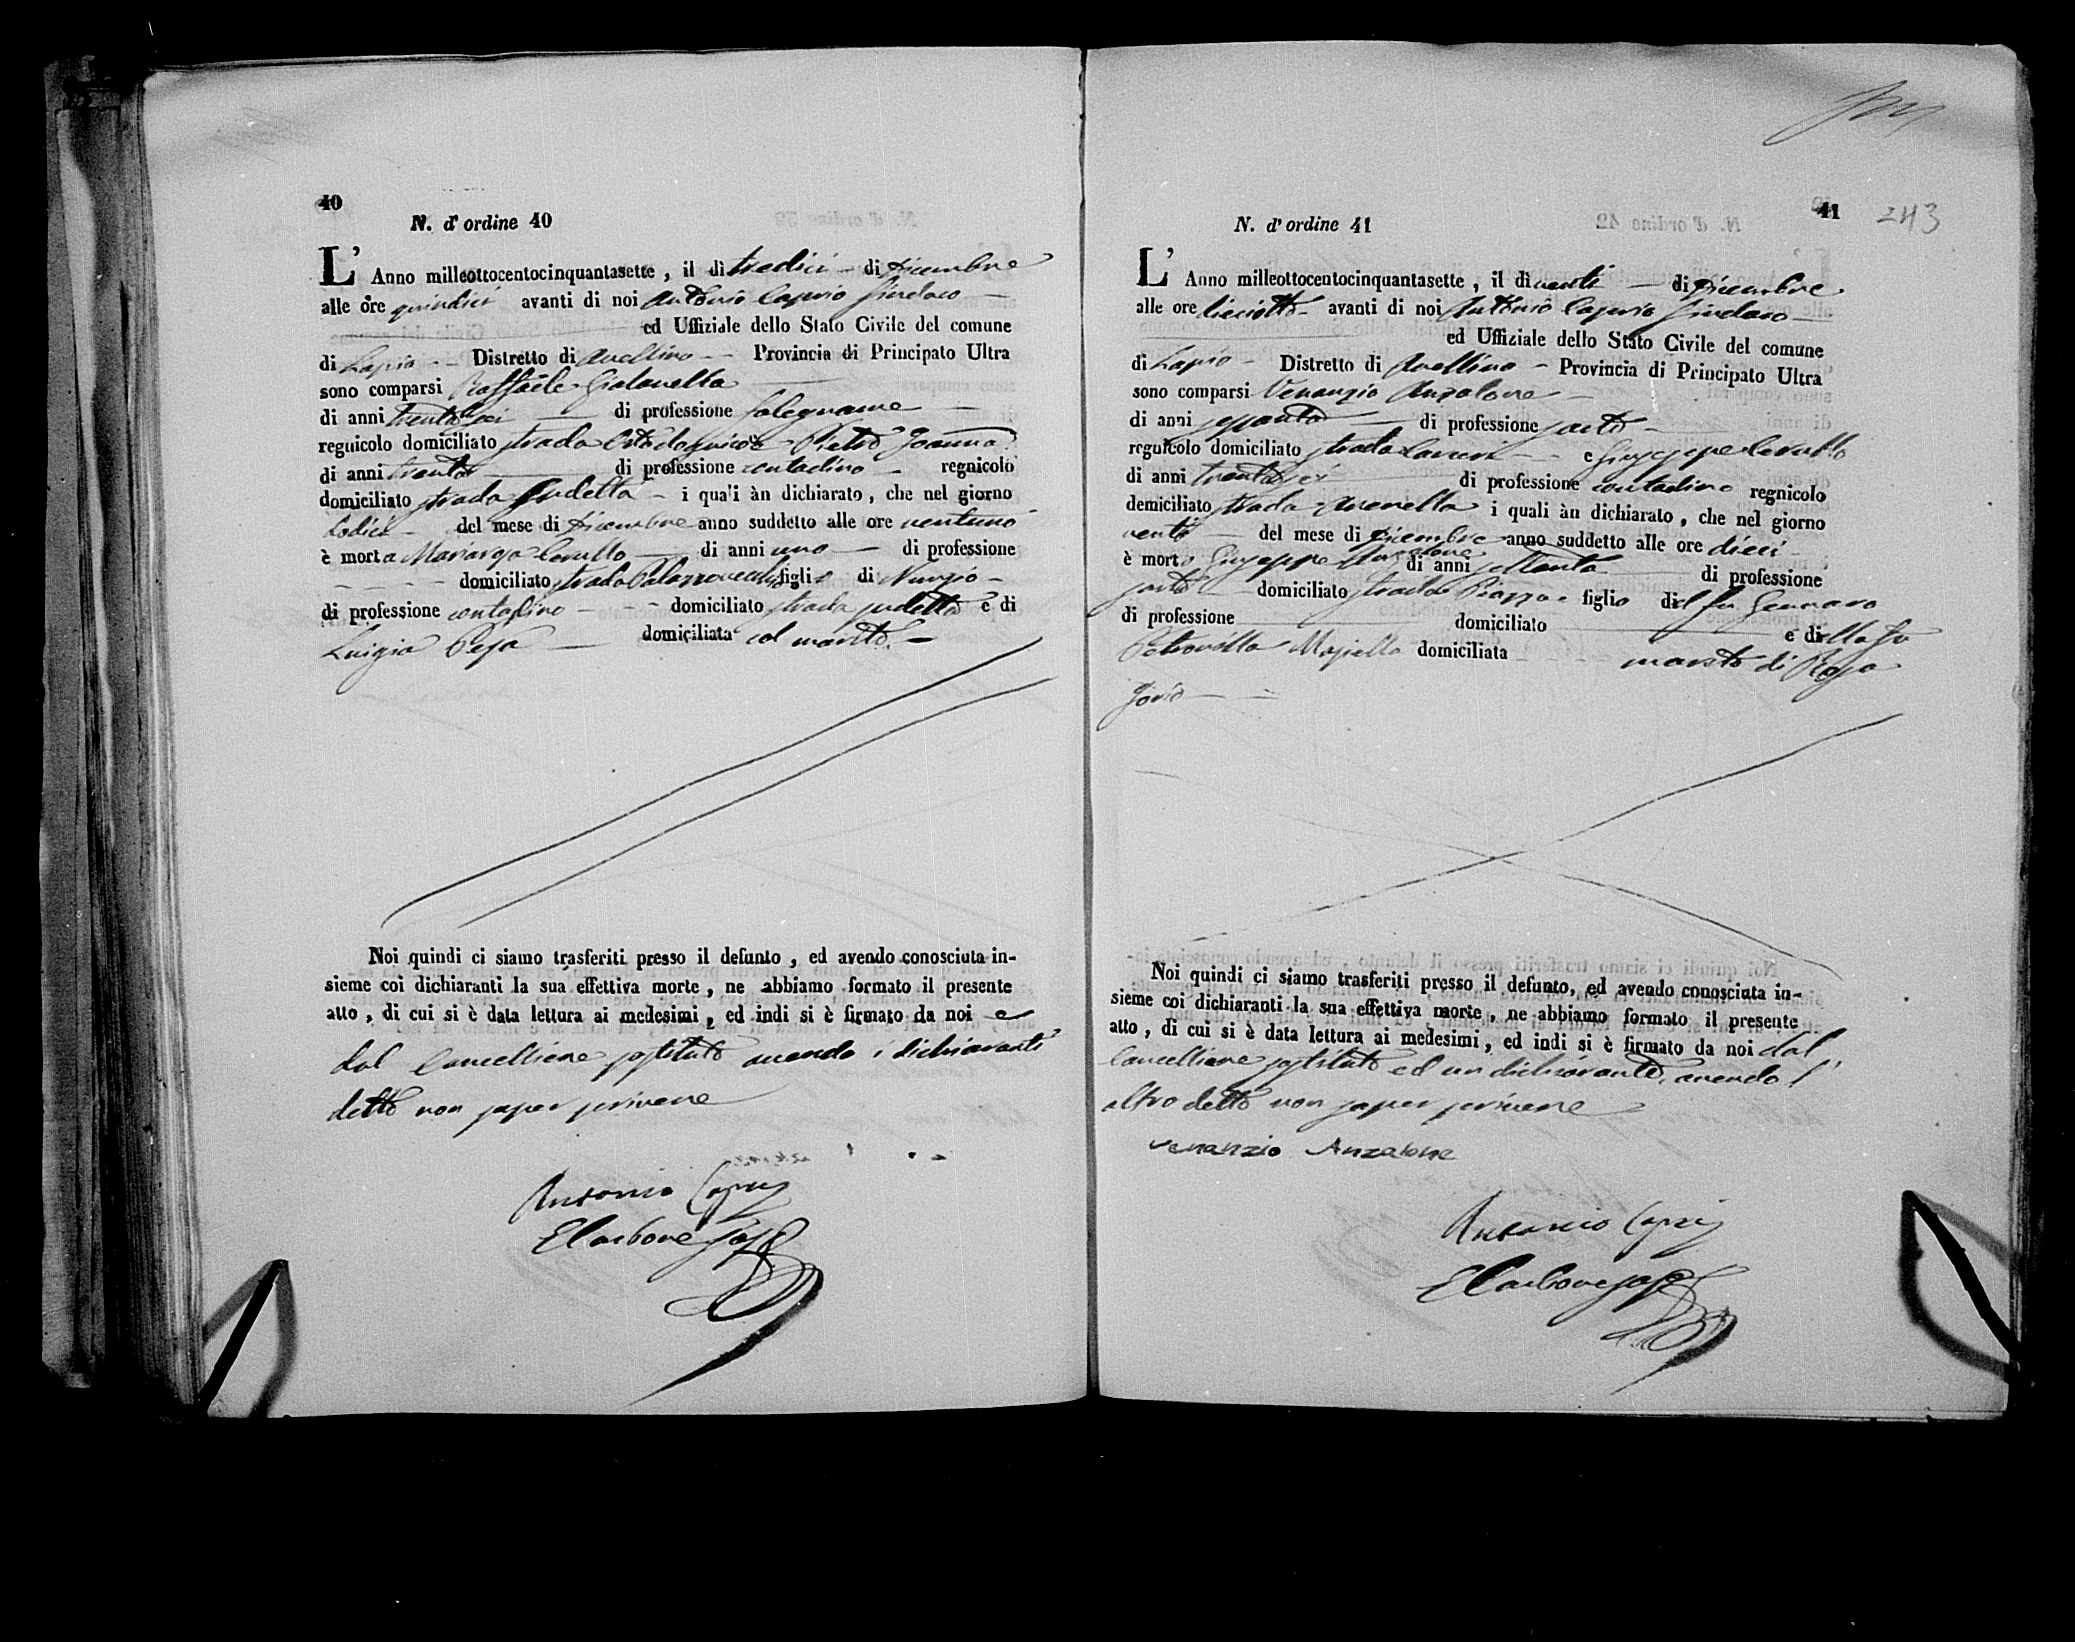 40
N. d' ordine 40
L' Anno milleottocentocinquantasette, il dì tredici - di Dicembre
alle ore quindici avanti di noi Antonio Caprio Sindaco
ed Uffiziale dello Stato Civile del comune
di Lapio - Distretto di Avellino - Provincia di Principato Ultra
sono comparsi Raffaele
di anni trentasei di professione falegname
regnicolo domiciliato strada Pietro Joanna
di anni trenta di professione contadino - regnicolo
domiciliato strada - i quali àn dichiarato, che nel giorno
dodici - del mese di Dicembre anno suddetto alle ore ventuno
è morta Mariarosa Cerullo di anni uno di professione
domiciliato strada Palazzovecchio figlia di Nunzio
di professione contadino - domiciliato strada e di
Luigia Pesa domiciliata col marito
Noi quindi ci siamo trasferiti presso il defunto, ed avendo conosciuta in-
sieme coi dichiaranti la sua effettiva morte, ne abbiamo formato il presente
atto, di cui si è data lettura ai medesimi, ed indi si è firmato da noi e
dal Cancelliere sostituto avendo i dichiaranti
detto non saper scrivere
Antonio Caprio
E Carbone Sost
41
243
N. d' ordine 41
L' Anno milleottocentocinquantasette, il dì venti di Dicembre
alle ore dieciotto - avanti di noi Antonio Caprio Sindaco
ed Uffiziale dello Stato Civile del comune
di Lapio - Distretto di Avellino - Provincia di Principato Ultra
sono comparsi Venanzio Anzalone
di anni sessanta di professione sarto
regnicolo domiciliato strada e Giuseppe Cerullo
di anni trentasei di professione contadino regnicolo
domiciliato strada i quali àn dichiarato, che nel giorno
venti del mese di Dicembre anno suddetto alle ore dieci
è morto Giuseppe Anzalone di anni settanta di professione
sarto domiciliato strada Piazza figlio del fu Gennaro
di professione domiciliato e della fu
Petronilla domiciliata marito di Rosa
Jorio
Noi quindi ci siamo trasferiti presso il defunto, ed avendo conosciuta in-
sieme coi dichiaranti la sua effettiva morte, ne abbiamo formato il presente
atto, di cui si è data lettura ai medesimi, ed indi si è firmato da noi dal
Cancelliere sostituto ed un dichiarante, avendo l'
altro detto non saper scrivere
venanzio Anzalone
Antonio Caprio
E Carbone Sost